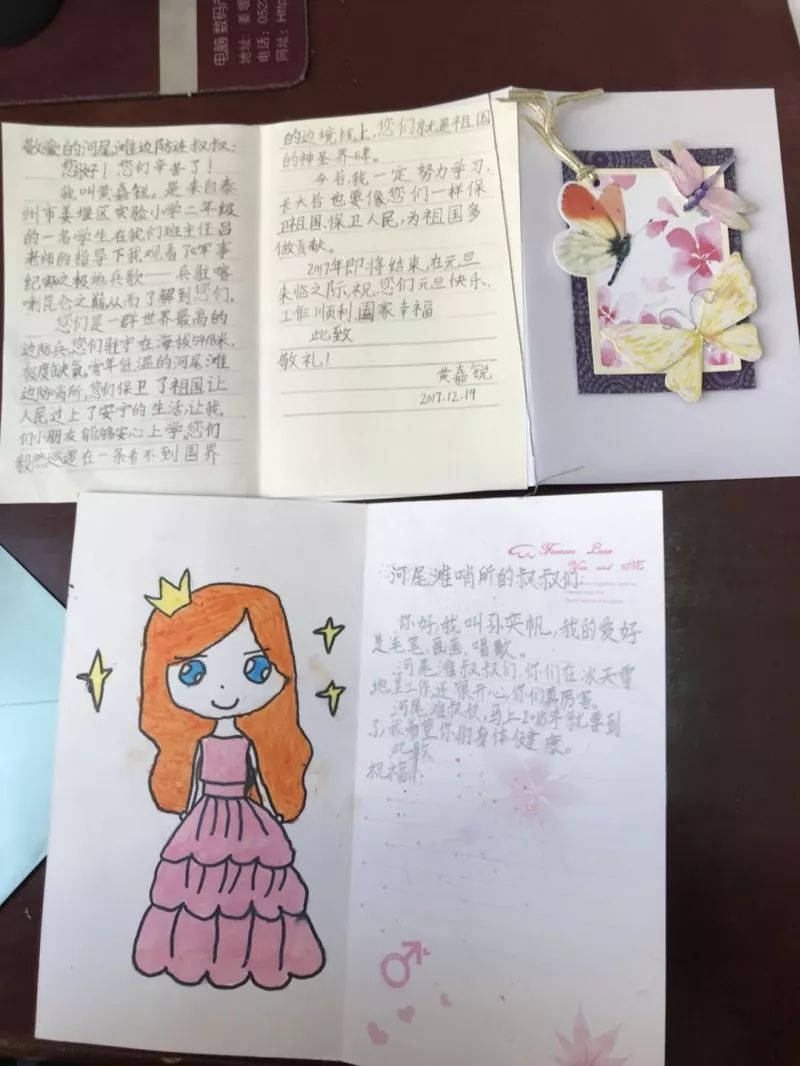 电脑数码
地址：姜堰
电话：052
网址：Http
敬爱的河尾滩边防连叔叔：
您好！您们辛苦了！
我叫黄嘉锐，是来自泰
州市姜堰区实验小学二年级
的一名学生在我们班主任吕
老师的指导下我观看了《军事
纪实》之极地兵歌——兵驻喀
喇昆仑之巅从而了解到您们。
您们是一群世界最高的
边防兵,您们驻守在海拔5418米,
极度缺氧,常年低温的河尾滩
边防哨所,您们保卫了祖国让
人民过上了安宁的生活,让我
们小朋友能够安心上学。您们
毅然巡逻在一条看不到国界
的边境线上,您们就是祖国
的神圣界碑。
今后,我一定努力学习,
长大后也要像您们一样保
卫祖国、保卫人民,为祖国多
做贡献。
2017年即将结束,在元旦
来临之际,祝,您们元旦快乐、
工作顺利,国家幸福
此致
敬礼！
黄嘉锐
2017.12.19
Forever Love
You and Me
河尾滩哨所的叔叔们:
你好,我叫孙奕帆,我的爱好
是毛笔、画画、唱歌。
河尾滩叔叔们,你们在冰天雪
地里工作,还很开心,你们真厉害。
河尾滩叔叔,马上2018年就要到
了,我希望你们身体健康。
此致
祝福!